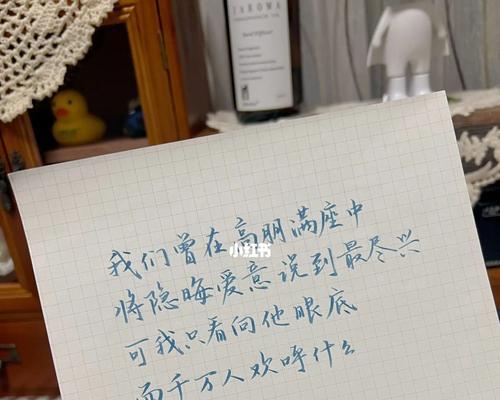 JAROMA
我们曾在高朋满座中
小红书
将隐晦爱意说到最尽兴
可我只看向他眼底
而千万人欢呼什么